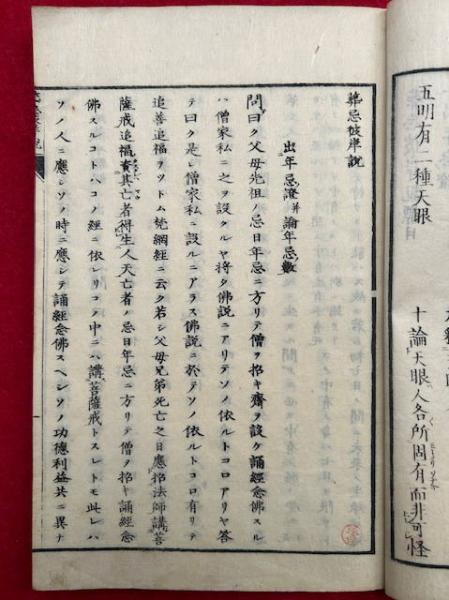 五明有二種天眼
十論天眼人各所固有而非可怪
葬忌彼岸説
出年忌證并論年忌數
問曰ク父母先祖ノ忌日年忌ニ方リテ僧ヲ招キ齋ヲ設ケ誦經念佛スル
ハ僧家私ニ之ヲ設クルヤ將タ佛説ニアリテソノ依ルトコロアリヤ答
テ曰ク是レ僧家私ニ設ルニアラス佛説ニ於テソノ依ルトコロ有リテ
追善追福ヲツトム梵網經ニ云ク若シ父母兄弟死亡之日應招法師講菩
薩戒追福資其亡者得生人天亡者ノ忌日年忌ニ方リテ僧ヲ招キ誦經念
佛スルコトハコノ經ニ依レリコノ中ニハ講菩薩戒トスレトモ此レハ
ソノ人ニ應シソノ時ニ應シテ誦經念佛スヘシソノ功德利益共ニ異ナ